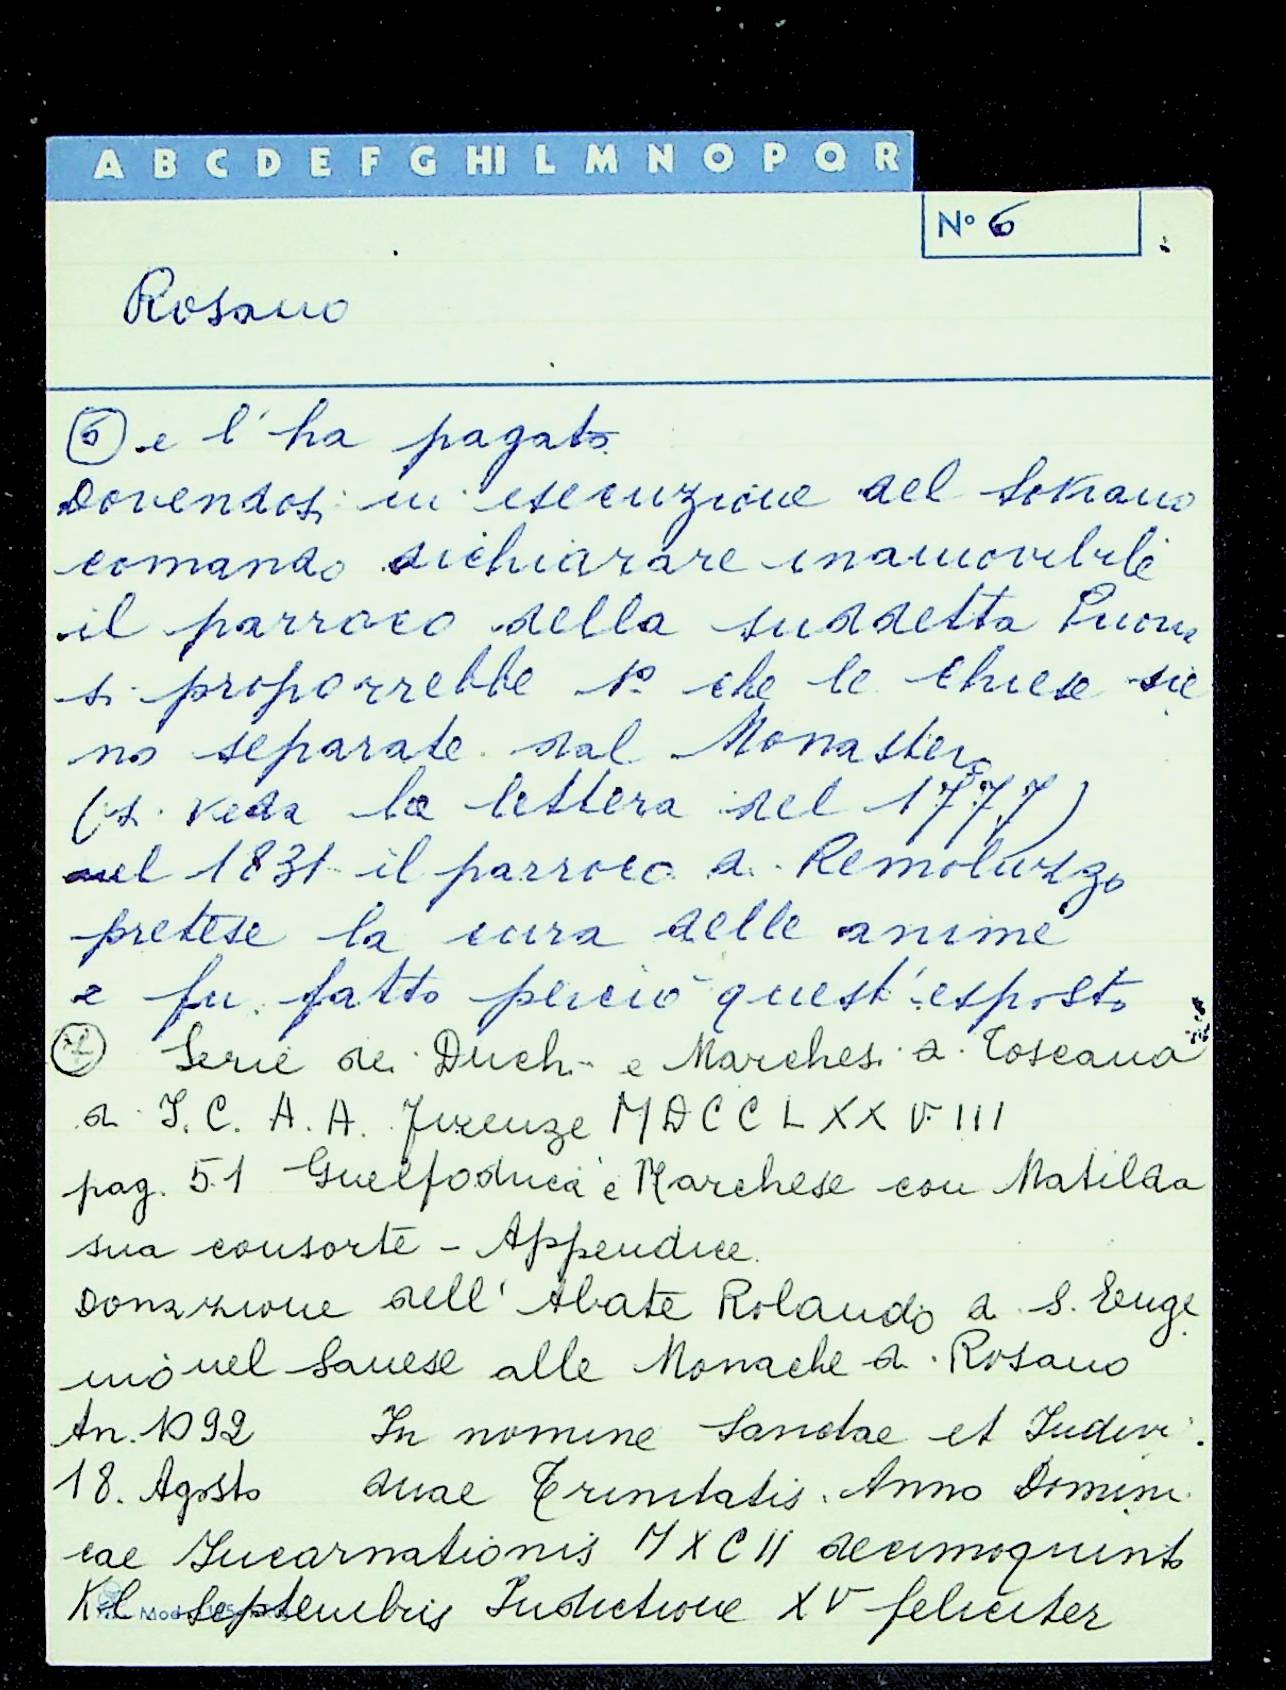 A B C D E F G HI L M N O P Q R
N° 6
Rosano
6 e l'ha pagato.
Dovendosi in esecuzione del Sovrano
comando dichiarare inamovibile
il parroco della suddetta
si proporrebbe 1° che le chiese sie
no separate dal Monastero
(si veda la lettera del 1777)
nel 1831 il parroco di Remoluzzo
pretese la cura delle anime
e fu fatto perciò quest'esposto
Serie dei Duchi e Marchesi di Toscana
di I. C. A. A. Firenze MDCCLXXVIII
pag. 51 Guelfo duca e Marchese con Matilda
sua consorte - Appendice.
Donazione dell'Abate Rolando di S. Euge
nio nel Sanese alle Monache di Rosano
An. 1092 In nomine Sanctae et Indivi
18. Agosto duae Trinitatis. Anno Domini
cae Incarnationis MXCII decimoquinto
Kal Septembris Indictione XV feliciter
Mod